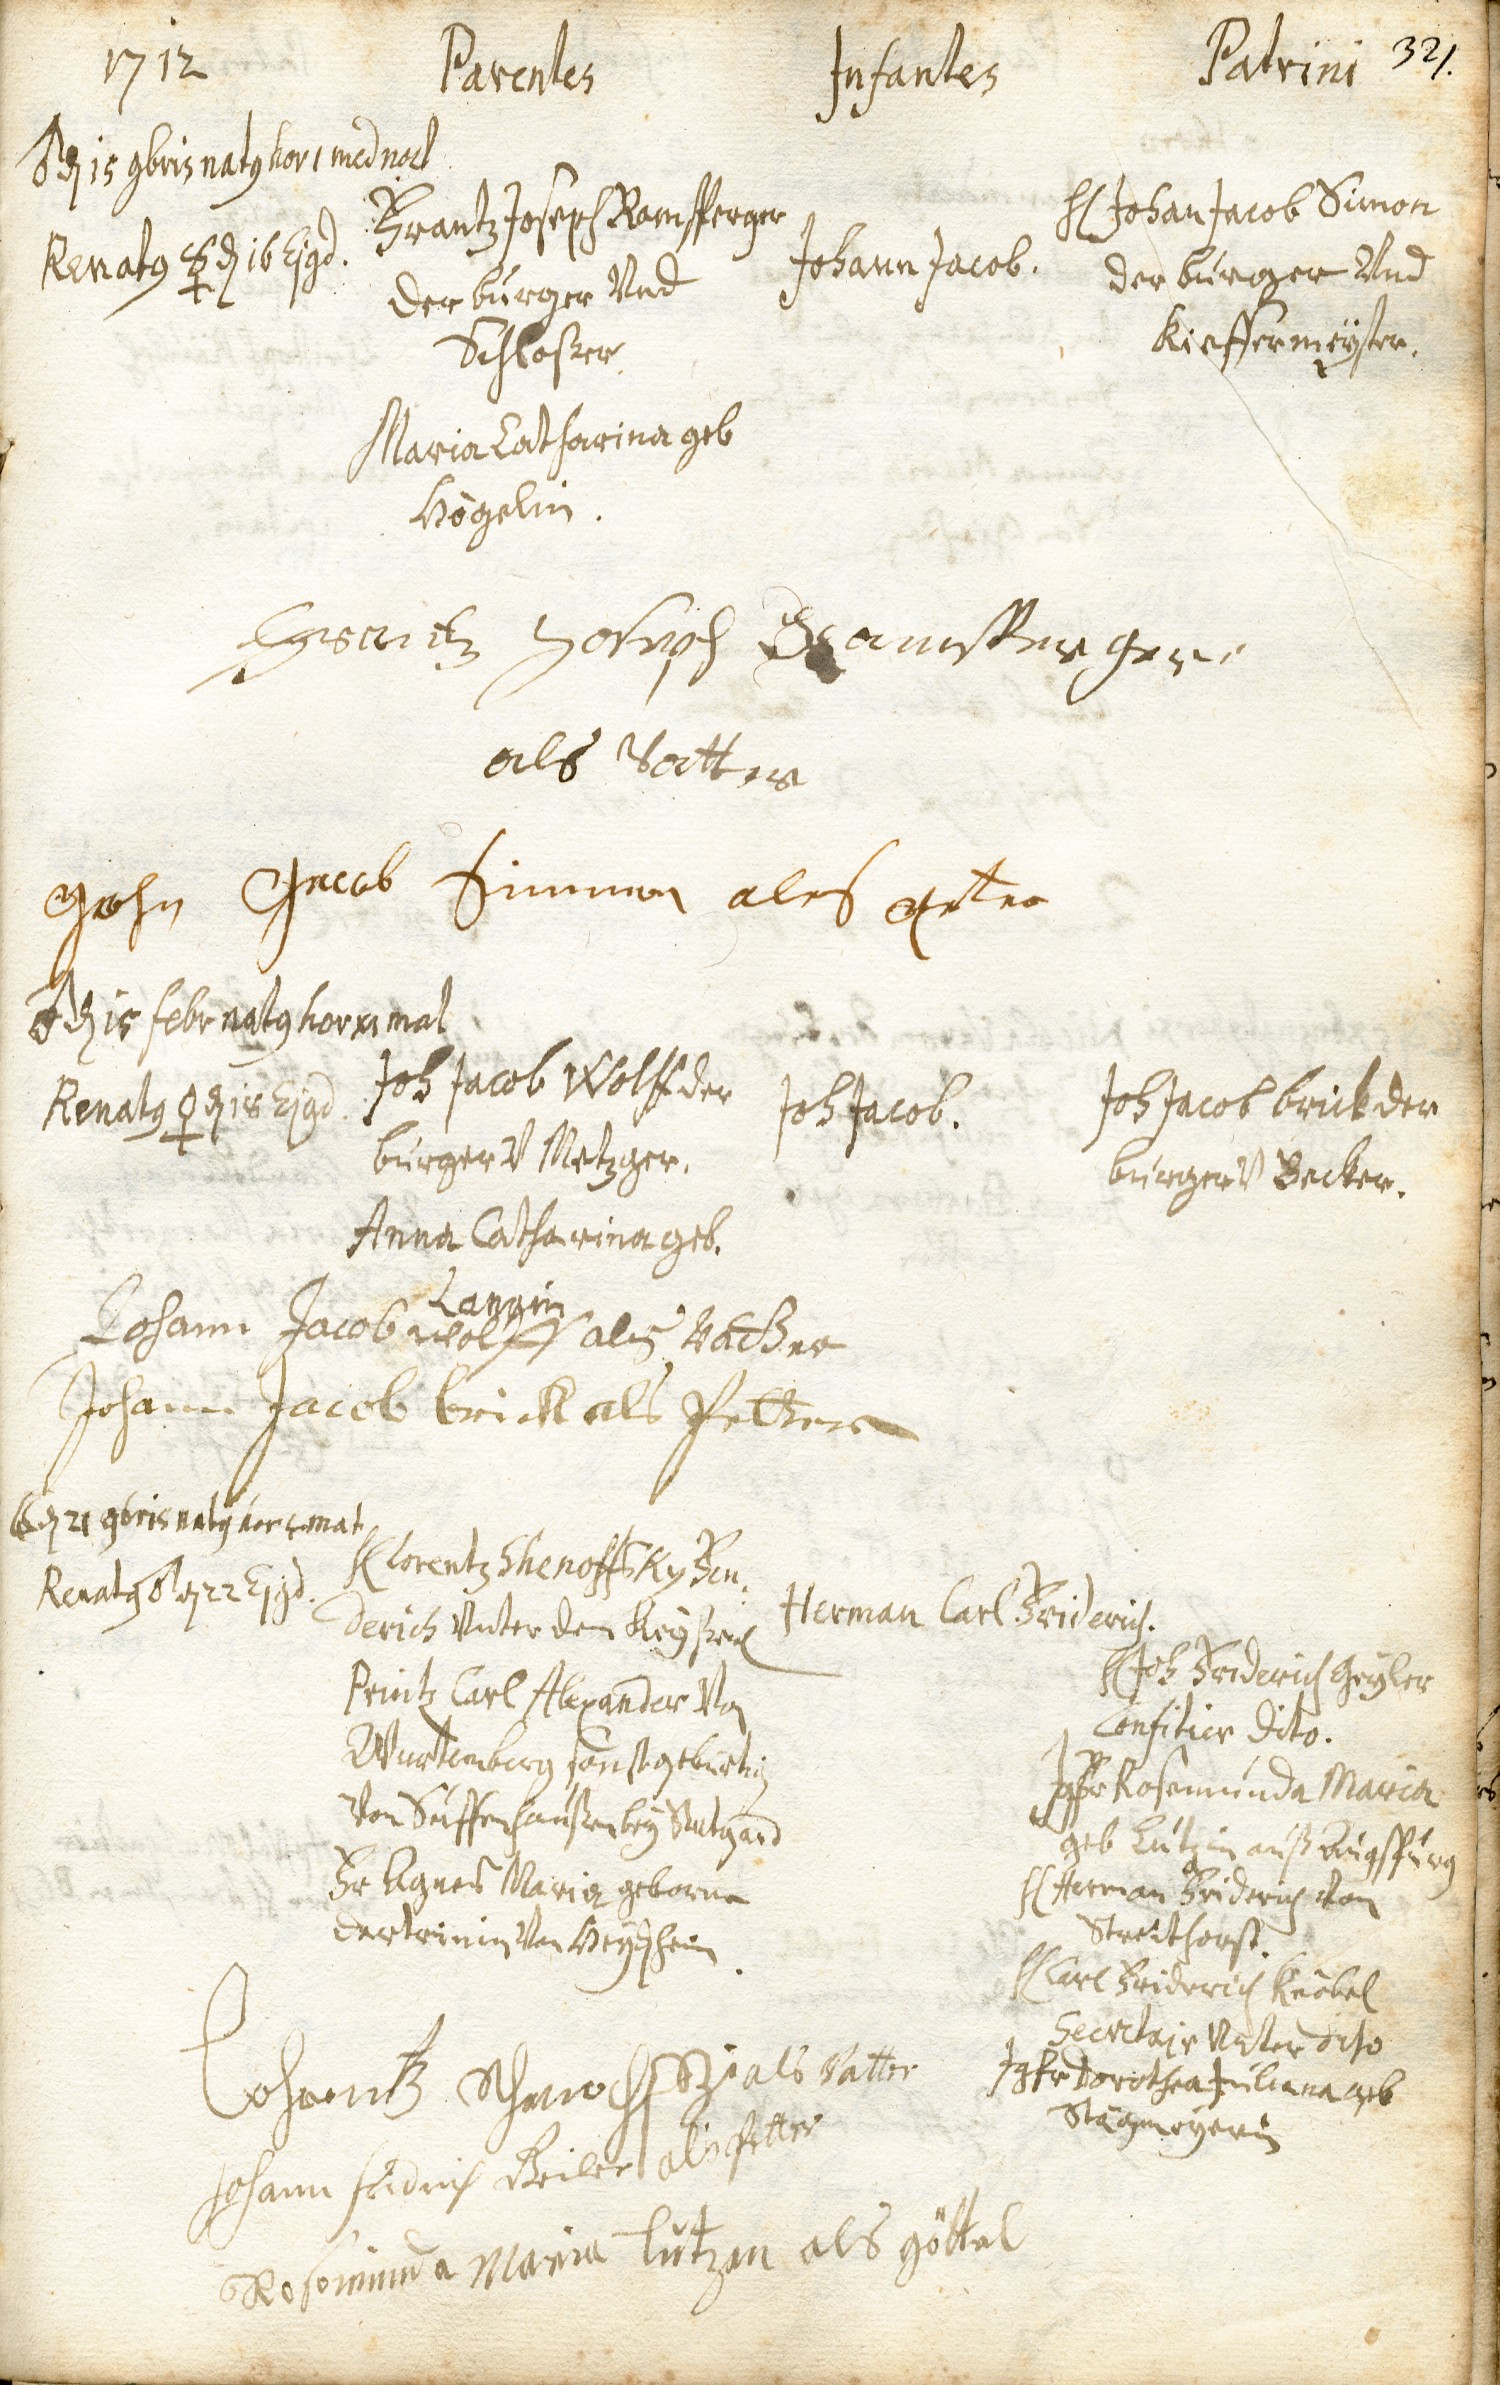 1712 Parentes Infantes Patrini 321.
♂ d 15 9bris natg hor 1 med noct
Renatg ☿ d 16 Ejgd.
Frantz Joseph Ramsperger
der burger Und
Schloßer.
Maria Catharina geb
Högelin.
Johann Jacob.
H Johan Jacob Simon
der burger Und
Kieffermeÿster.
Frantz Joseph Ramsperger
als Vatter
Johan Jacob Simmon als
♂ d 15 febr natg hor XI mat
Renatg ♀ d 18 Ejgd.
Joh Jacob Wolff der
burger V Metzger.
Anna Catharina geb.
Langin
Joh Jacob.
Joh Jacob brick der
burger V Becker.
Johann Jacob wolff als Vather
Johann Jacob brick als Petter
d 21 9bris natg hor 5 mat
Renatg ♂ d 22 Ejgd.
H Lorentz Shenoffsky Fen
derich Unter dem
Printz Carl Alexander Von
Wurtemberg sonst gebürtig
Von Suffenhaußen beÿ Stutgard
Fr Agnes Maria geborne
Von
Herman Carl Friderich.
H Joh Friderich Geÿler
Confitier dito.
Jgfr Rosemunda Maria
geb Lutzin auß Augspurg
H Herman Friderich Von
Streithorst.
H Carl Friderich Knöbel
Secretair Unter dito
Jgfr Dorothea Juliana geb
Stagmeyerin
Lohrentz als Vatter
Johann fridrich Geiler als Petter
Rosemunda Maria Lutzen als göttel